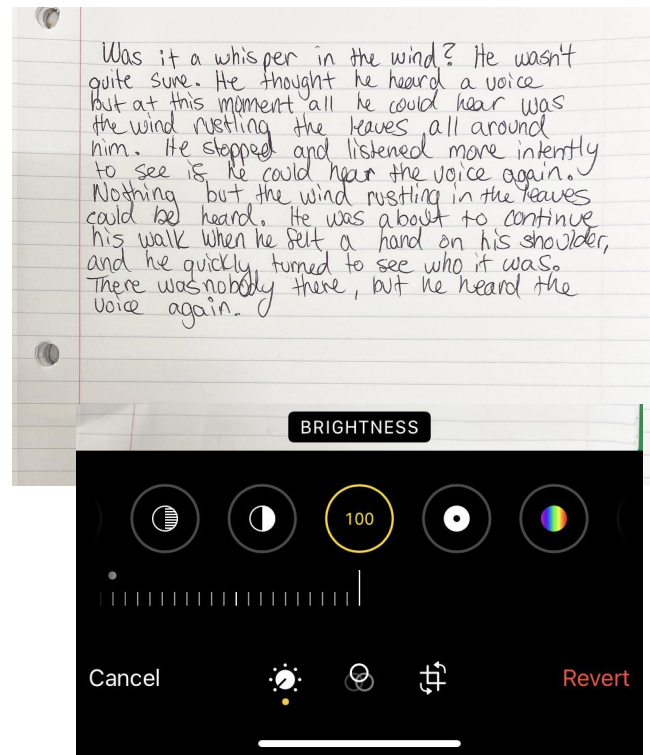 Was it a whisper in the wind? He wasn't
quite sure. He thought he heard a voice
but at this moment all he could hear was
the wind rustling the leaves all around
him. He stopped and listened more intently
to see if he could hear the voice again.
Nothing but the wind rustling in the leaves
could be heard. He was about to continue
his walk when he felt a hand on his shoulder,
and he quickly turned to see who it was.
There was nobody there, but he heard the
voice again.
BRIGHTNESS
100
Cancel
Revert